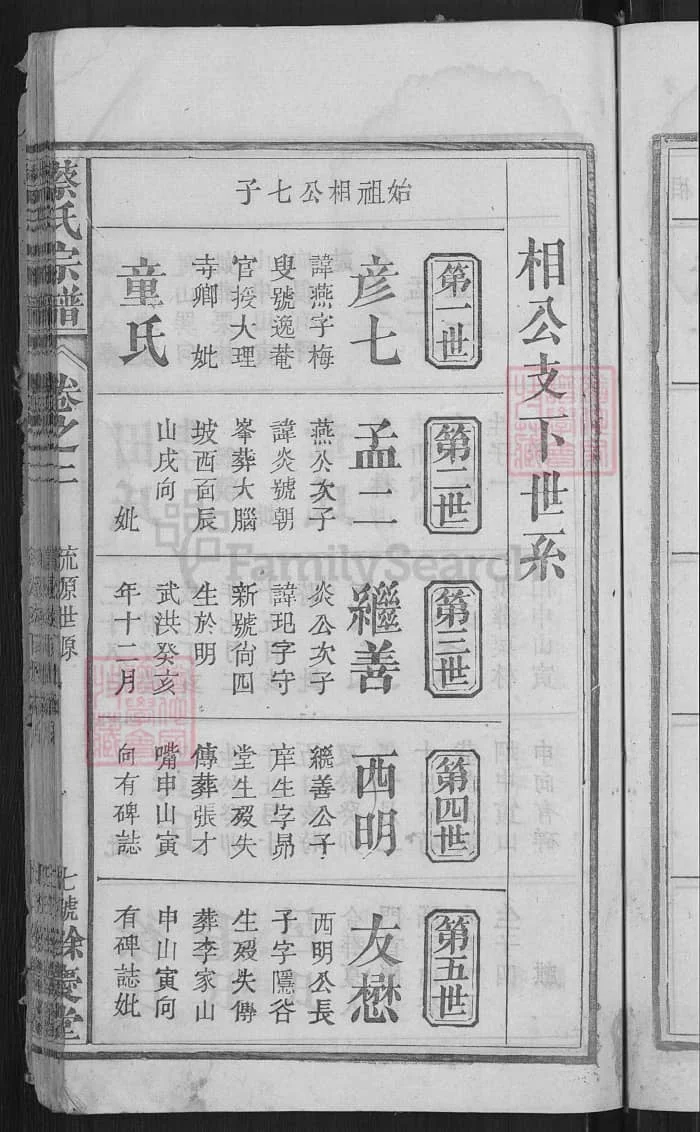 相公支下世系
始祖相公七子
第一世
彦七
諱燕字梅
叟號逸菴
官授大理
寺卿 妣
童氏
第二世
孟二
燕公次子
諱炎號朝
峯葬大腦
坡西面辰
山戌向
妣
第三世
繼善
炎公次子
諱玘字守
新號尙四
生於明
武洪癸亥
年十二月
第四世
西明
繼善公子
庠生字昴
堂生殁失
傳葬張才
嘴申山寅
向有碑誌
第五世
友懋
西明公長
子字隱谷
生殁失傳
葬李家山
申山寅向
有碑誌妣
蔡氏宗譜
卷之二
流源世源
七號
餘慶堂
FamilySearch